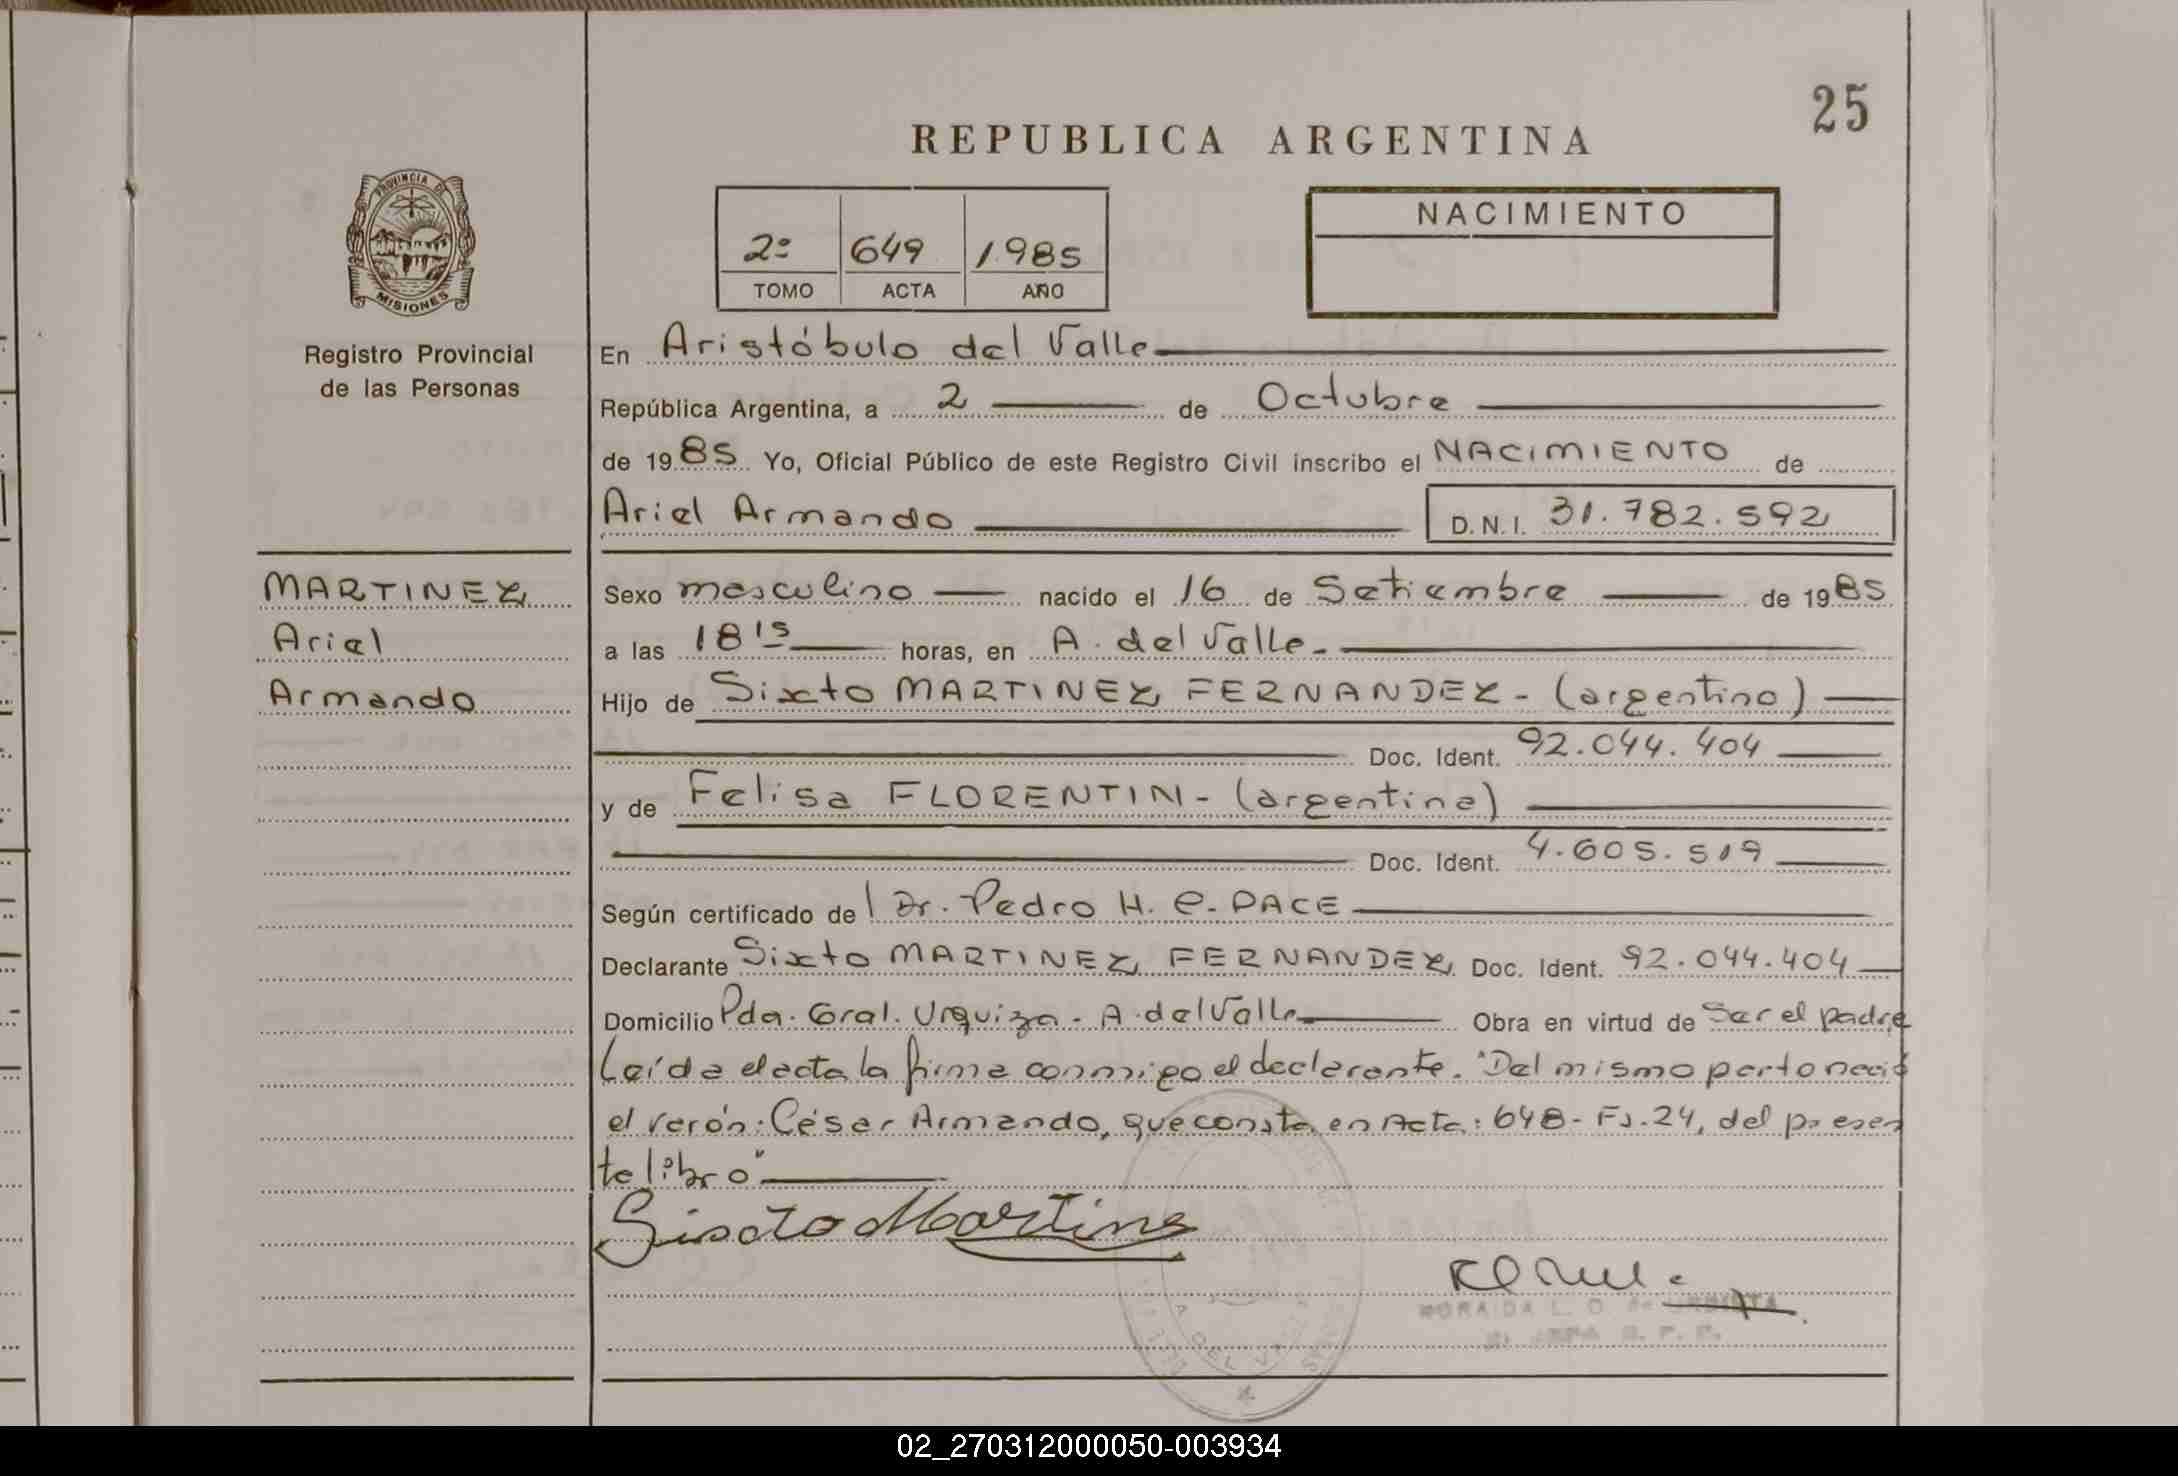 25
REPUBLICA ARGENTINA
PROVINCIA DE
MISIONES
Registro Provincial
de las Personas
2º 649 1985
TOMO ACTA AÑO
NACIMIENTO
En Aristóbulo del Valle
República Argentina, a 2 de Octubre
de 1985 Yo, Oficial Público de este Registro Civil inscribo el NACIMIENTO de
Ariel Armando D.N.I. 31.782.592
MARTINEZ
Ariel
Armando
Sexo masculino nacido el 16 de Setiembre de 1985
a las 18 15 horas, en A. del Valle.
Hijo de Sixto MARTINEZ FERNANDEZ - (argentino)
Doc. Ident. 92.044.404
y de Felisa FLORENTIN - (argentina)
Doc. Ident. 4.605.519
Según certificado de Dr. Pedro H. C. PACE
Declarante Sixto MARTINEZ FERNANDEZ Doc. Ident. 92.044.404
Domicilio Pda. Gral. Urquiza - A. del Valle Obra en virtud de Ser el padre
Leída el acta la firma conmigo el declarante. "Del mismo parto nació
el varón: César Armando, que consta en Acta: 648 - Fs. 24, del presen
te libro"
Sixto Martine
02_270312000050-003934